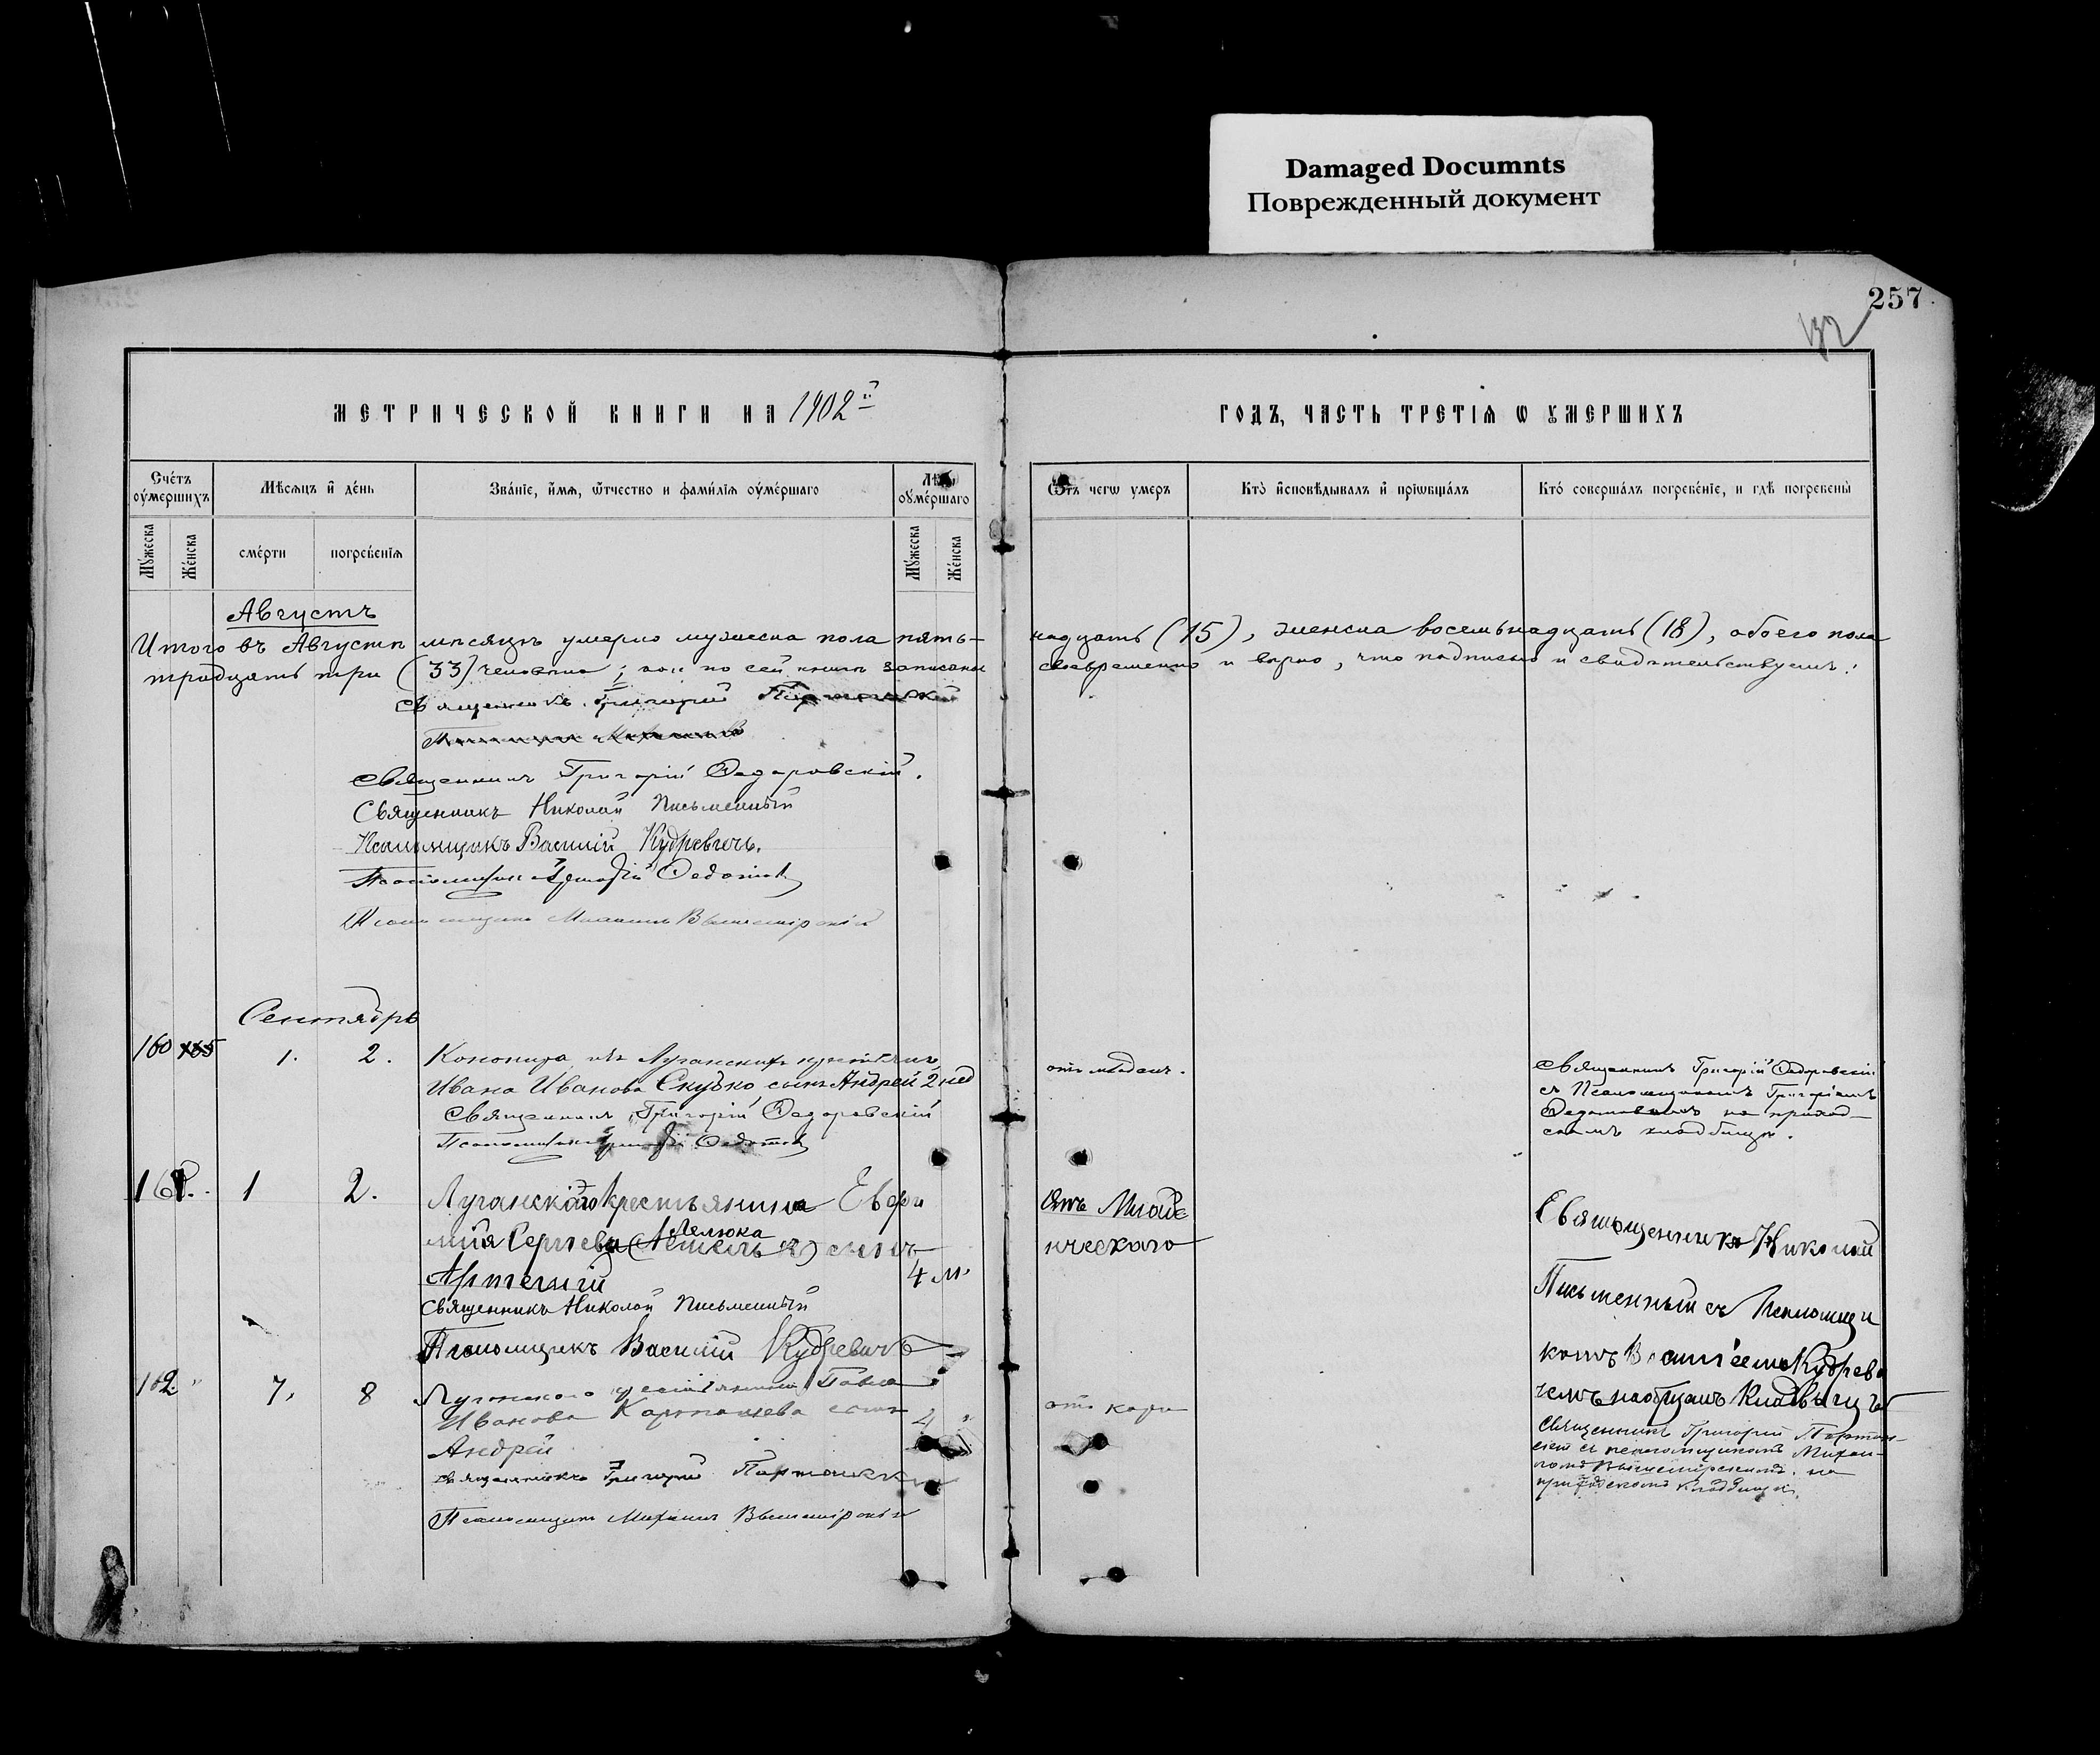 Damaged Documnts
Поврежденный документ
257
132
МЕТРИЧЕСКОЙ КНИГИ НА 1902й
ГОДЪ, ЧАСТЬ ТРЕТІЯ Ѡ ОУМЕРШИХЪ
Сче́тъ оу́мершихъ
Мѣсяцъ и҆ де́нь
Зва́нїе, и҆́мѧ, ѿ́тчество и фами́лїѧ оу҆ме́ршаго
Лѣ оу҆ме́ршаго
Ѿтъ чегѡ умеръ
Кто̀ и҆сповѣ́дывалъ и҆ прїѡбща́лъ
Кто́ соверша́лъ погребе́нїе, и гдѣ̀ погребены̀
Му́жеска
Же́нска
сме́рти
погребе́нїѧ
Му́жеска
Же́нска
Августъ
Итого въ Августѣ мѣсяцѣ умерло мужеска пола пять-
надцать (15), женска восемьнадцать (18), обоего пола
тридцать три (33) человѣка; по сей книгѣ записаны
своевременно и вѣрно, что подписью и свидѣтельствуемъ:
Священникъ Григорій
Священникъ Григорій Федоровскій.
Священникъ Николай Письменный
Псаломщикъ Василій Кудревичъ.
Псаломщикъ Григорій Федотов
Псаломщикъ Михаилъ Вышемірскій
Сентябрь
160 165 1. 2. изъ Луганскихъ
Ивана Иванова Скубко сынъ Андрей 2 нед
Священникъ Григорій Федоровскій
Псаломщикъ Григорій Федотов
отъ младен.
Священникъ Григорій Федоровскій
съ Псаломщикомъ Григоріемъ
Федотовымъ на приход-
скомъ кладбищѣ.
161. 1 2. Луганскаго крестьянина Евфи
мія Сергіева Лелюка сынъ
Артемій 4 м.
Священникъ Николай Письменный
Псаломщикъ Василій Кудревичъ
Отъ Младе
нческаго
Священникъ Николай
Письменный съ Псаломщи
комъ Василіемъ Кудреви
чемъ на общемъ Кладбищѣ
162. " 7. 8 Луганского крестьянина Павла
Иванова сынъ 4 "
Андрей
Священникъ Григорій
Псаломщикъ Михаилъ Вышемірскій
отъ кори
Священникъ Григорій
съ псаломщикомъ Михаи-
ломъ Вышемірскимъ на
приходскомъ кладбищѣ.